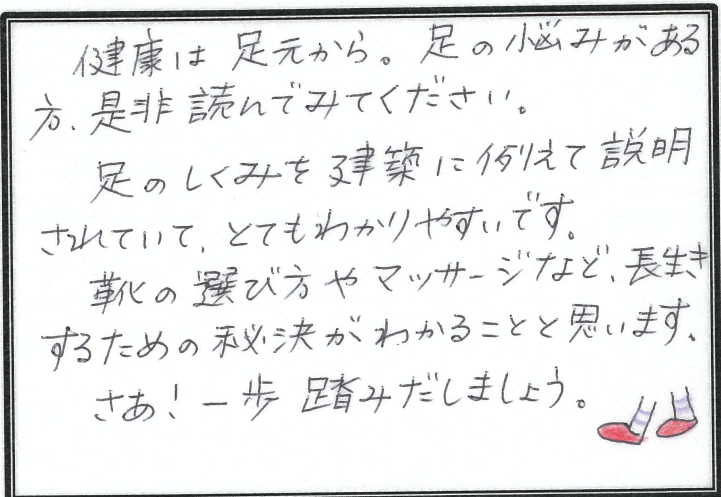 健康は足元から。足の悩みがある
方、是非読んでみてください。
足のしくみを建築に例えて説明
されていて、とてもわかりやすいです。
靴の選び方やマッサージなど、長生き
するための秘決がわかることと思います。
さあ！一歩踏みだしましょう。